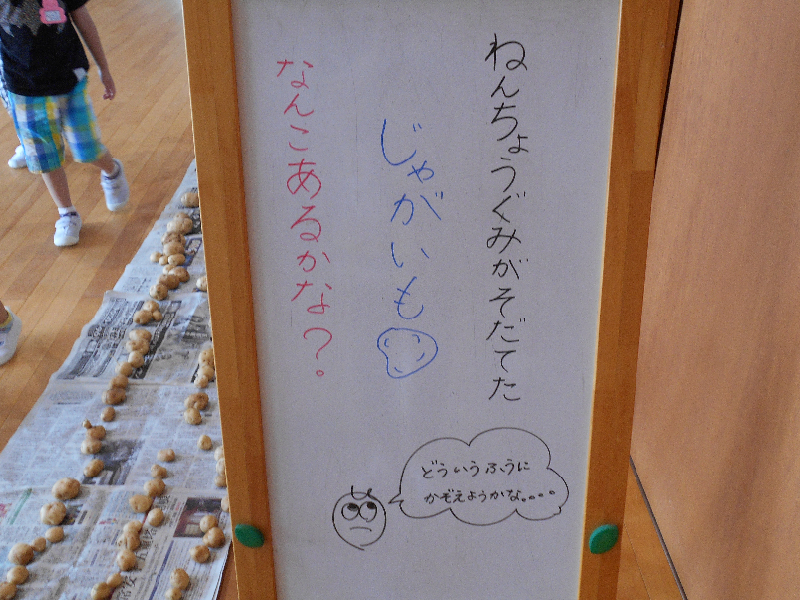 ねんちょうぐみがそだてた
じゃがいも
なんこあるかな?。
どういうふうに
かぞえようかな。・・・・